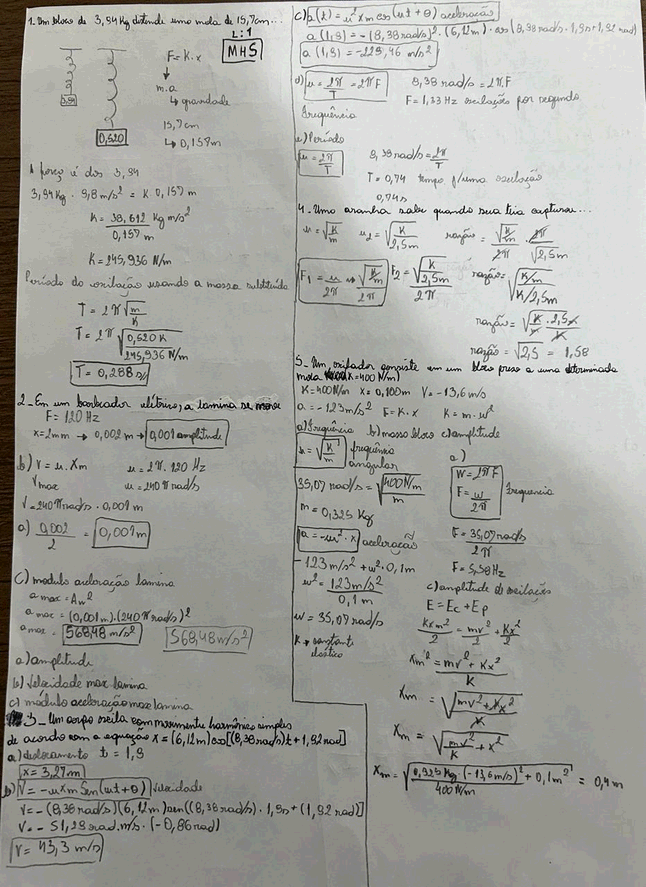 1. Um bloco de 3,94 Kg distende uma mola de 15,7cm...
L:1
MHS
F = K·x
m.a
↳ gravidade
15,7cm
↳ 0,157m
3,94
0,520
A força é dos 3,94
3,94 Kg · 9,8 m/s² = K · 0,157 m
K = 38,612 Kg m/s² / 0,157 m
K = 245,936 N/m
Período da oscilação usando a massa substituída
T = 2π √(m/K)
T = 2π √(0,520 K / 245,936 N/m)
T = 0,288 s
2_ Em um barbeador elétrico, a lamina se move
F = 120 Hz
x = 2mm → 0,002 m → 0,001 amplitude
b) V = u · Xm
u = 2π · 120 Hz
Vmax
u = 240 π rad/s
V = 240 π rad/s · 0,001 m
a) 0,002 / 2 = 0,001 m
C) modulo aceleração lamina
a max = Aw²
a max = (0,001 m) · (240 π rad/s)²
a max = 568,48 m/s² 568,48 m/s²
a) amplitude
b) Velocidade max lamina
c) módulo aceleração max lamina
3_ Um corpo oscila com movimento harmônico simples
de acordo com a equação x = (6,12m) cos[(8,38 rad/s)t + 1,92 rad]
a) deslocamento t = 1,9
x = 3,27 m
b) V = -u x m sen(ut + θ) Velocidade
V = -(8,38 rad/s)(6,12m) sen((8,38 rad/s) · 1,9s + (1,92 rad)]
V = - 51,28 rad.m/s · (-0,86 rad)
V = 43,3 m/s
c) a(t) = u² x m cos(ut + θ) aceleração
a (1,9) = -(8,38 rad/s)² · (6,12m) · cos(8,38 rad/s · 1,9s + 1,92 rad)
a (1,9) = -229,46 m/s²
d) u = 2π / T = 2π F
8,38 rad/s = 2π.F
F = 1,33 Hz oscilações por segundo
Frequência
e) Período
u = 2π / T
8,38 rad/s = 2π / T
T = 0,74 tempo p/ uma oscilação
0,74s
4. Uma aranha sabe quando sua teia capturou...
u = √(K/m) u2 = √(K/2,5m) razão = √(K/m) / 2π · 2π / √2,5m
F1 = u / 2π → √(K/m) / 2π F2 = √(K/2,5m) / 2π razão = √((K/m) / (K/2,5m))
razão = √(K/m · 2,5m/K)
razão = √2,5 = 1,58
5_ Um oscilador consiste em um bloco preso a uma determinada
mola (K = 400 N/m)
K = 400 N/m x = 0,100m V = -13,6 m/s
a = -123 m/s² F = K·x K = m·w²
a) Frequência b) massa bloco c) amplitude
u = √(K/m) frequência angular
35,07 rad/s = √(400 N/m / m)
m = 0,325 Kg
a = -w² · x aceleração
-123 m/s² + w² · 0,1m
w² = 123 m/s² / 0,1 m
w = 35,07 rad/s
K → constante elástica
a)
W = 2πF
F = w / 2π
Frequencia
F = 35,07 rad/s / 2π
F = 5,58 Hz
c) amplitude de oscilações
E = Ec + Ep
Kxm² / 2 = mv² / 2 + Kx² / 2
Xm² = mv² + Kx² / K
Xm = √(mv² + Kx² / K)
Xm = √(mv² / K + x²)
Xm = √(0,325 Kg (-13,6 m/s)² / 400 N/m + 0,1m²) = 0,4 m